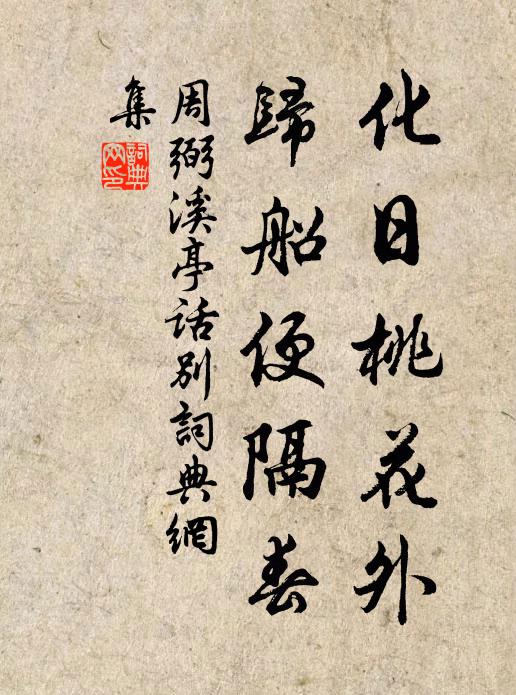 化日桃花外
歸船便隔春
周弼溪亭話別詞典網
集
詞典網印